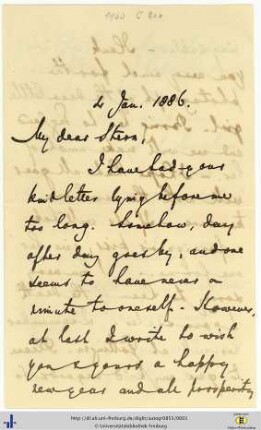 2 Jan. 1886.
My dear Stern,
I have had your
kind letter lying before me
too long. Somehow, day
after day goes by, and one
seems to have never a
minute to oneself. However,
at last I write to wish
you & yours a happy
new year and all prosperity
© Universitätsbibliothek Freiburg